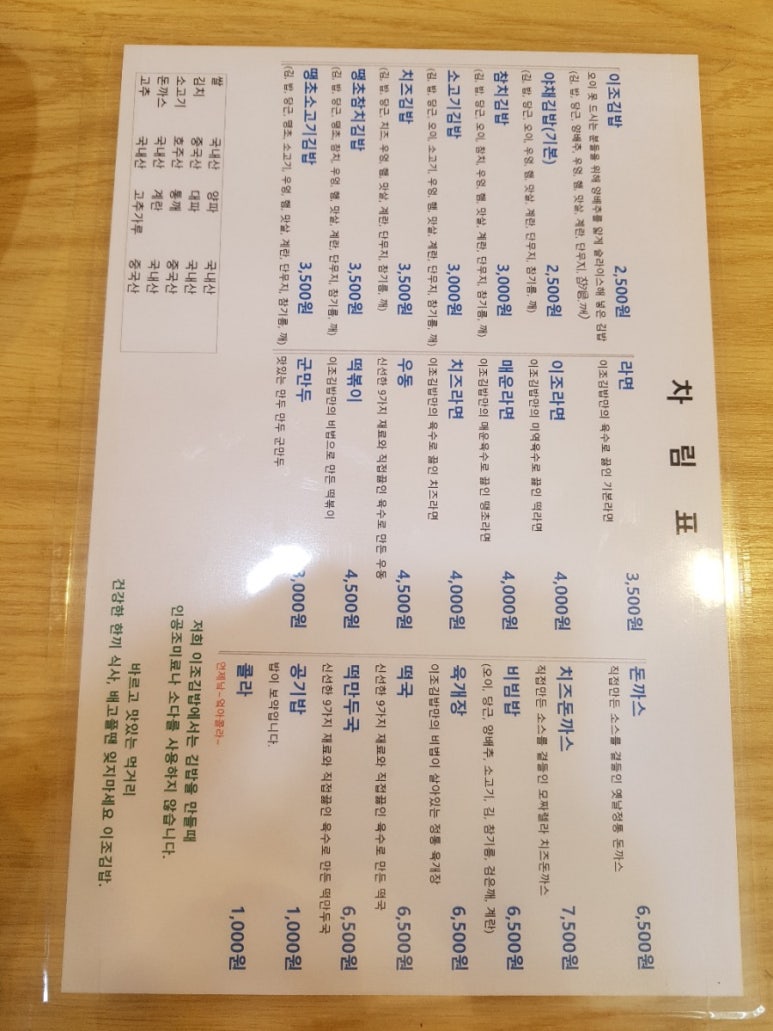 차림표
이조김밥 2,500원
오이 못 드시는 분들을 위해 양배추를 얇게 슬라이스해 넣은 김밥
(김, 밥, 당근, 양배추, 우엉, 햄, 맛살, 계란, 단무지, 참기름, 깨)
야채김밥(기본) 2,500원
(김, 밥, 당근, 오이, 우엉, 햄, 맛살, 계란, 단무지, 참기름, 깨)
참치김밥 3,000원
(김, 밥, 당근, 오이, 참치, 우엉, 햄, 맛살, 계란, 단무지, 참기름, 깨)
소고기김밥 3,000원
(김, 밥, 당근, 오이, 소고기, 우엉, 햄, 맛살, 계란, 단무지, 참기름, 깨)
치즈김밥 3,500원
(김, 밥, 당근, 치즈, 우엉, 햄, 맛살, 계란, 단무지, 참기름, 깨)
땡초참치김밥 3,500원
(김, 밥, 당근, 땡초, 참치, 우엉, 햄, 맛살, 계란, 단무지, 참기름, 깨)
땡초소고기김밥 3,500원
(김, 밥, 당근, 땡초, 소고기, 우엉, 햄, 맛살, 계란, 단무지, 참기름, 깨)
쌀 국내산 양파 국내산
김치 중국산 대파 국내산
소고기 호주산 통깨 중국산
돈까스 국내산 계란 국내산
고추 국내산 고추가루 중국산
라면 3,500원
이조김밥만의 육수로 끓인 기본라면
이조라면 4,000원
이조김밥만의 미역육수로 끓인 떡라면
매운라면 4,000원
이조김밥만의 매운육수로 끓인 땡초라면
치즈라면 4,000원
이조김밥만의 육수로 끓인 치즈라면
우동 4,500원
신선한 9가지 재료와 직접끓인 육수로 만든 우동
떡볶이 4,500원
이조김밥만의 비법으로 만든 떡볶이
군만두 3,000원
맛있는 만두 만두 군만두
돈까스 6,500원
직접만든 소스를 곁들인 옛날정통 돈까스
치즈돈까스 7,500원
직접만든 소스를 곁들인 모짜렐라 치즈돈까스
비빔밥 6,500원
(오이, 당근, 양배추, 소고기, 김, 참기름, 검은깨, 계란)
육개장 6,500원
이조김밥만의 비법이 살아있는 정통 육개장
떡국 6,500원
신선한 9가지 재료와 직접끓인 육수로 만든 떡국
떡만두국 6,500원
신선한 9가지 재료와 직접끓인 육수로 만든 떡만두국
공기밥 1,000원
밥이 보약입니다.
콜라 1,000원
언제남~얼아콜라~
저희 이조김밥에서는 김밥을 만들때
인공조미료나 소다를 사용하지 않습니다.
바르고 맛있는 먹거리
건강한 한끼 식사, 배고플땐 잊지마세요 이조김밥.